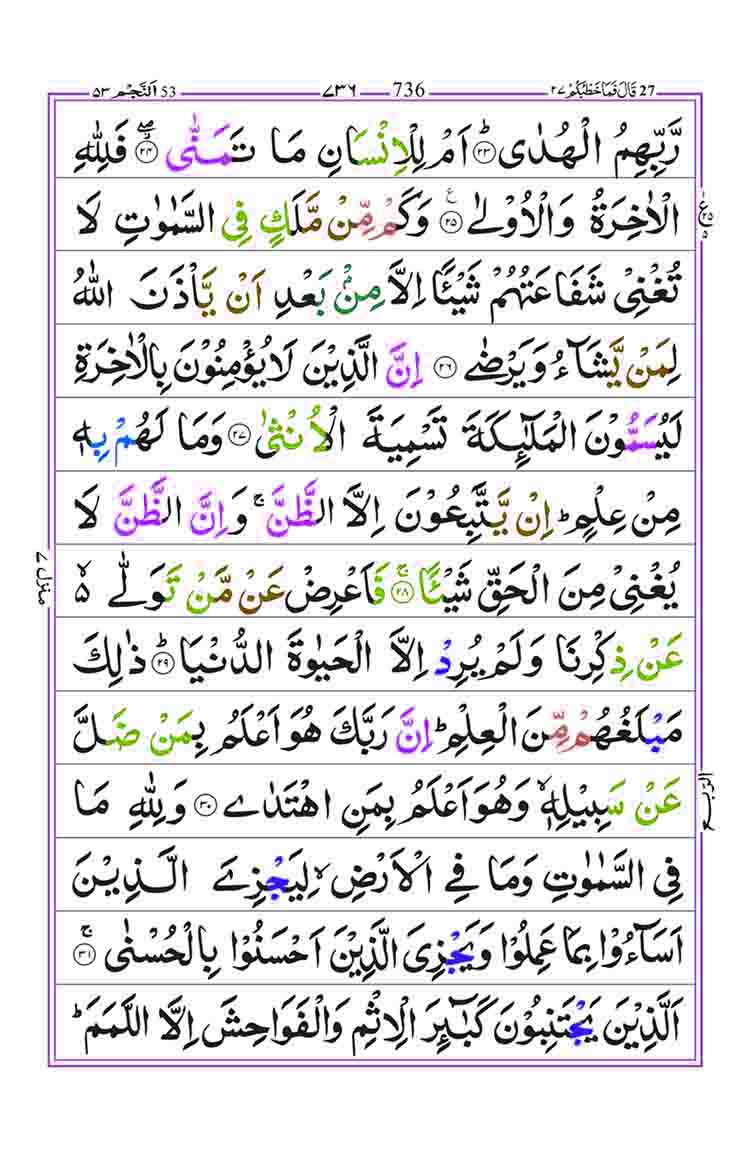 27 قَالَ فَمَا خَطْبُكُمْ ٢٧ 736 ٧٣٦ 53 اَلنَّجْم ٥٣
رَّبِّهِمُ الْهُدٰى ؕ‏ ﴿۲۳﴾ اَمْ لِلْاِنْسَانِ مَا تَمَنّٰى ۖ‏ ﴿۲۴﴾ فَلِلّٰهِ
الْاٰخِرَةُ وَالْاُوْلٰى ‏ ﴿۲۵﴾ ع وَكَمْ مِّنْ مَّلَكٍ فِى السَّمٰوٰتِ لَا
تُغْنِىْ شَفَاعَتُهُمْ شَيْـًٔـا اِلَّا مِنْۢ بَعْدِ اَنْ يَّاْذَنَ اللّٰهُ
لِمَنْ يَّشَآءُ وَيَرْضٰى ‏ ﴿۲۶﴾ اِنَّ الَّذِيْنَ لَا يُؤْمِنُوْنَ بِالْاٰخِرَةِ
لَيُسَمُّوْنَ الْمَلٰٓٮِٕكَةَ تَسْمِيَةَ الْاُنْثٰى ‏ ﴿۲۷﴾ وَمَا لَهُمْ بِهٖ
مِنْ عِلْمٍ ؕ اِنْ يَّتَّبِعُوْنَ اِلَّا الظَّنَّ ۚ وَاِنَّ الظَّنَّ لَا
يُغْنِىْ مِنَ الْحَـقِّ شَيْـًٔـا ۚ‏ ﴿۲۸﴾ فَاَعْرِضْ عَنْ مَّنْ تَوَلّٰى ۙ
عَنْ ذِكْرِنَا وَلَمْ يُرِدْ اِلَّا الْحَيٰوةَ الدُّنْيَا ؕ‏ ﴿۲۹﴾ ذٰلِكَ
مَبْلَـغُهُمْ مِّنَ الْعِلْمِ ؕ اِنَّ رَبَّكَ هُوَ اَعْلَمُ بِمَنْ ضَلَّ
عَنْ سَبِيْلِهٖ ۙ وَهُوَ اَعْلَمُ بِمَنِ اهْتَدٰى ‏ ﴿۳۰﴾ وَلِلّٰهِ مَا
فِى السَّمٰوٰتِ وَمَا فِى الْاَرْضِ ۙ لِيَجْزِىَ الَّذِيْنَ
اَسَآءُوْا بِمَا عَمِلُوْا وَيَجْزِىَ الَّذِيْنَ اَحْسَنُوْا بِالْحُسْنٰى ۚ‏ ﴿۳۱﴾
اَلَّذِيْنَ يَجْتَنِبُوْنَ كَبٰٓٮِٕرَ الْاِثْمِ وَالْفَوَاحِشَ اِلَّا اللَّمَمَ ؕ
منزل ٧
الربع